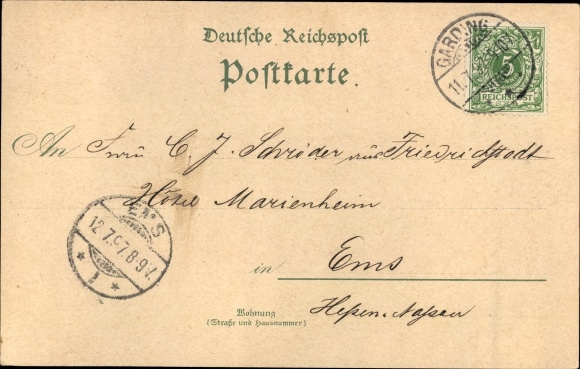 Deutsche Reichspost
Postkarte.
GARDING
11.7
5
REICHSPOST
An Frau C. J. Schröder aus Friedrichstadt
Hôtel Marienheim
EMS
12.7.97.8-9V.
in Ems
Wohnung
(Straße und Hausnummer)
Hessen-Nassau